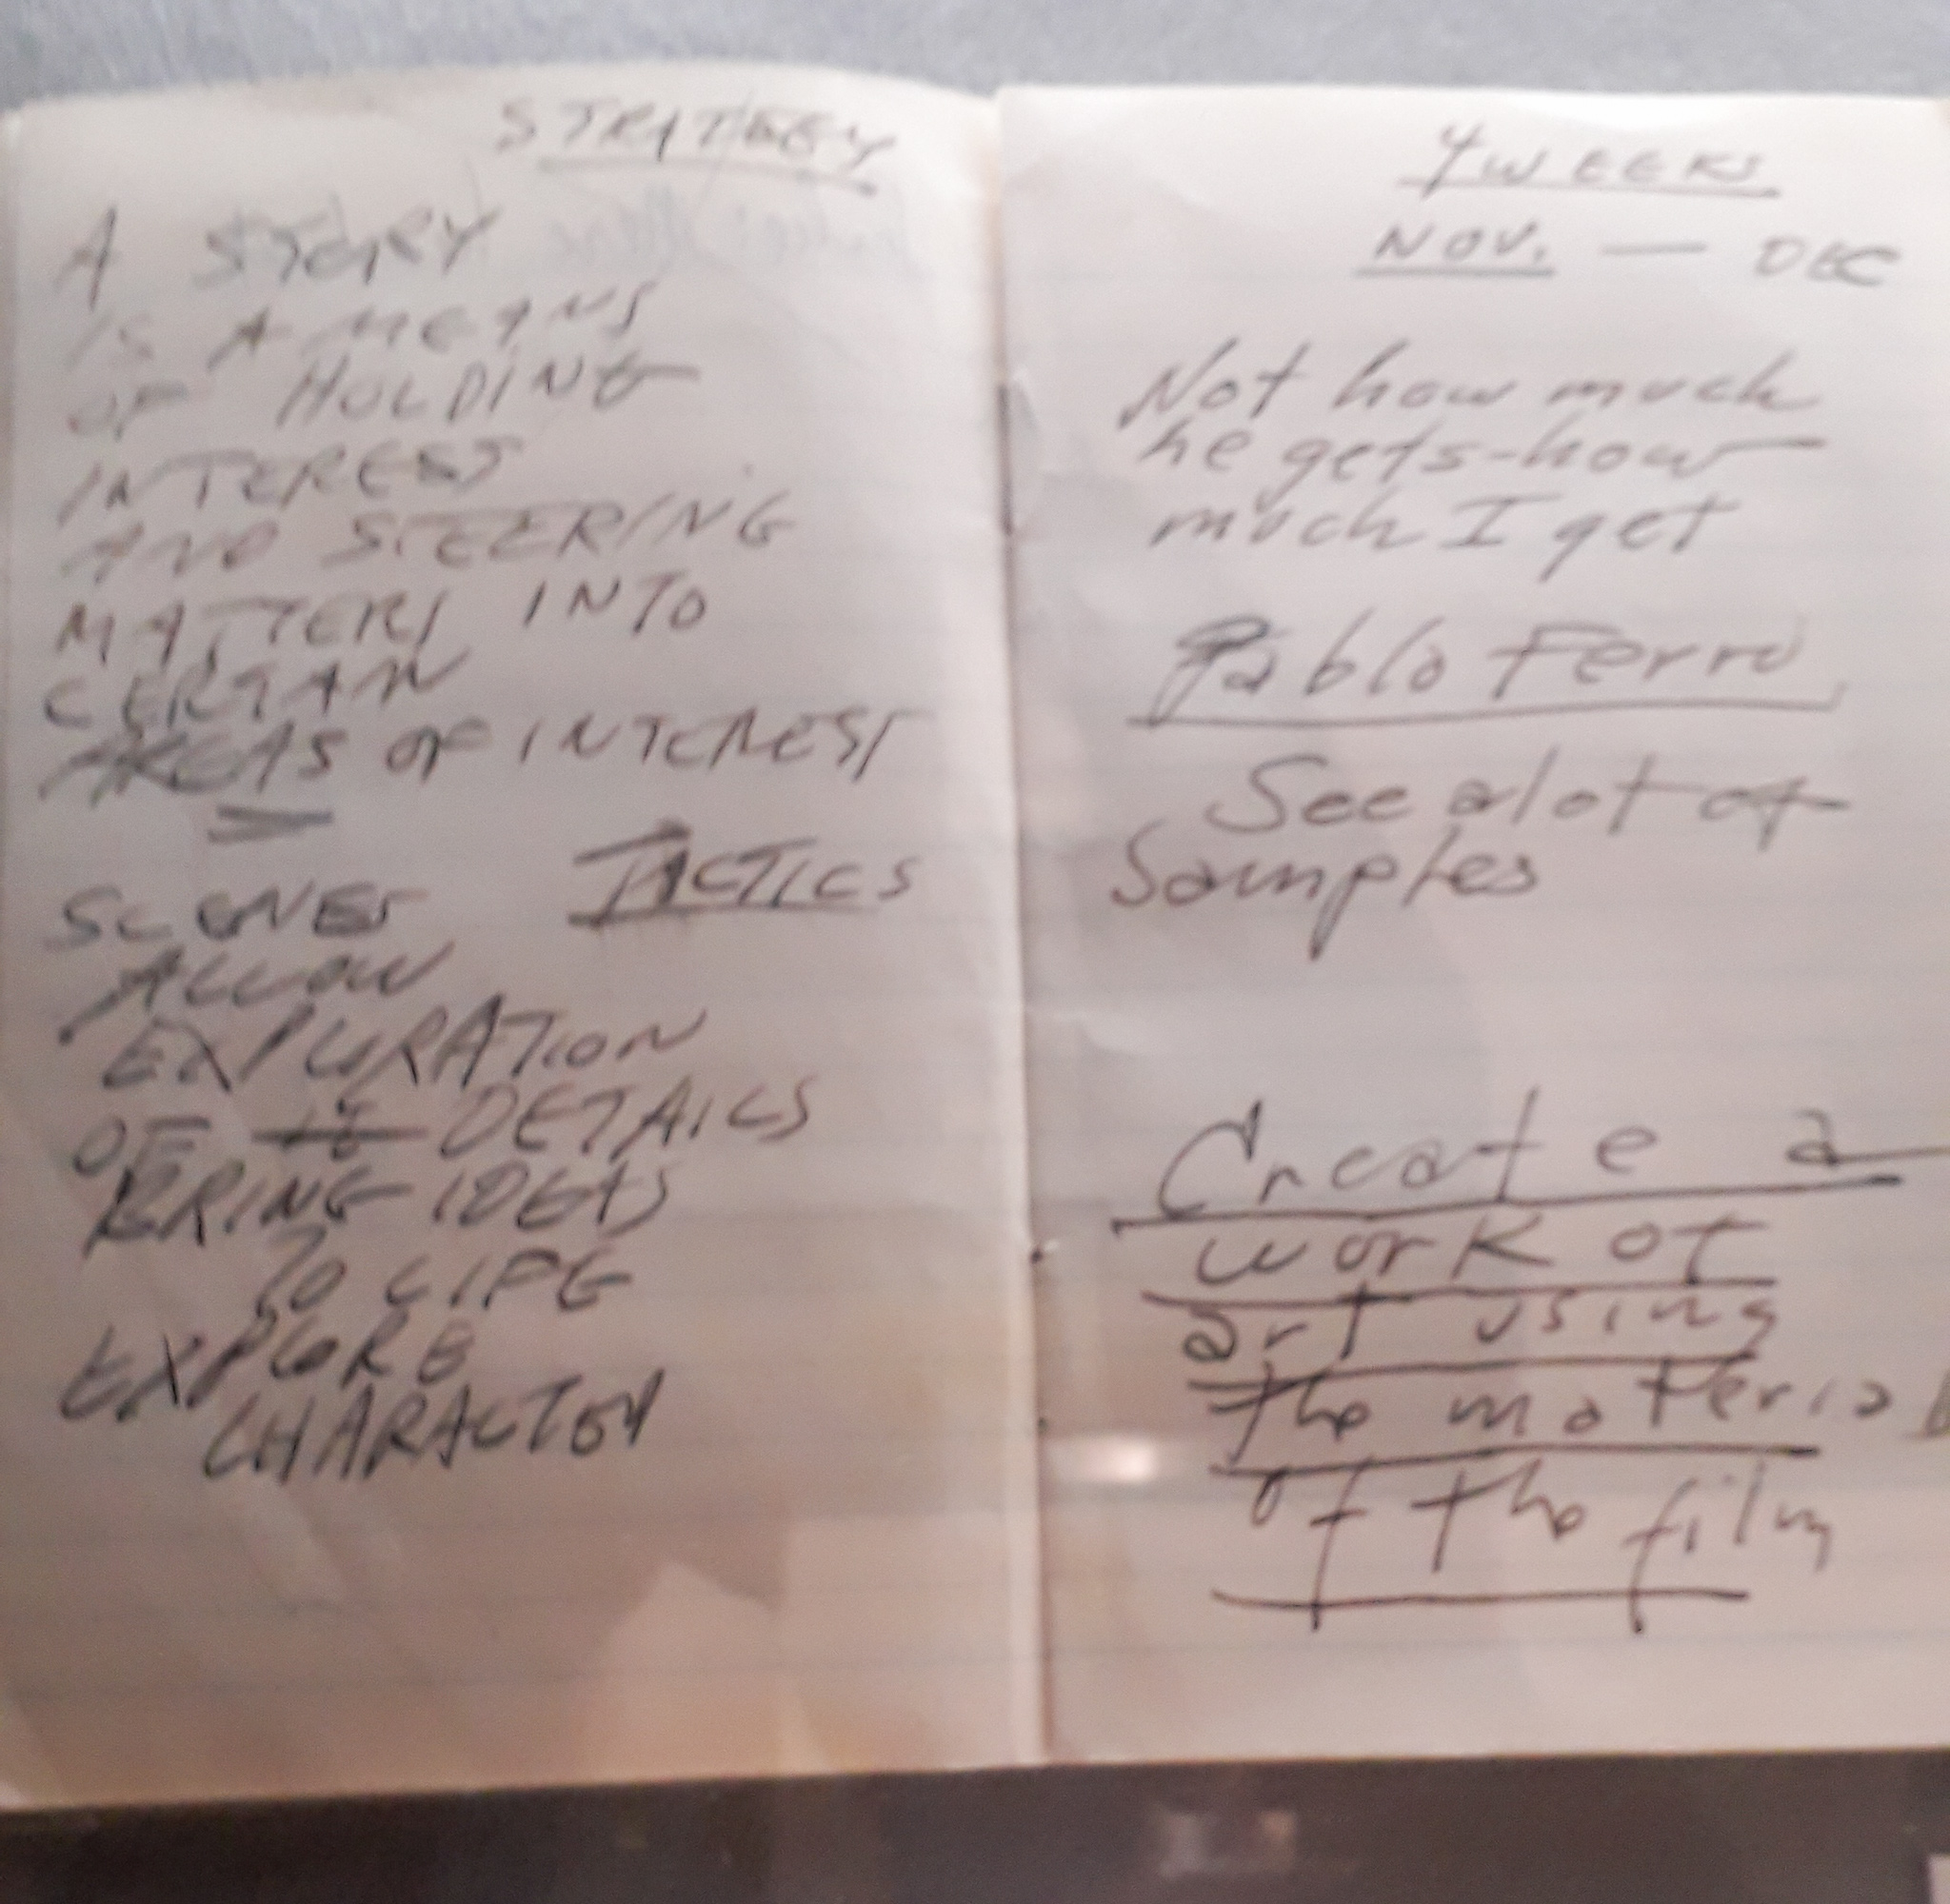 STRITEGY
A STORY
IS A MEANS
OF HOLDING
INTEREST
AND STEERING
MATTERS INTO
CERTAIN
AREAS OF INTEREST
TACTICS
SCENES
ALLOW
EXPLORATION
OF DETAILS
BRING IDEAS
TO LIFE
EXPLORE
CHARACTER
4 WEEKS
NOV. — DEC
Not how much
he gets-how
much I get
Pablo Ferro
See alot of
Samples
Create a
work of
art using
the material
of the film